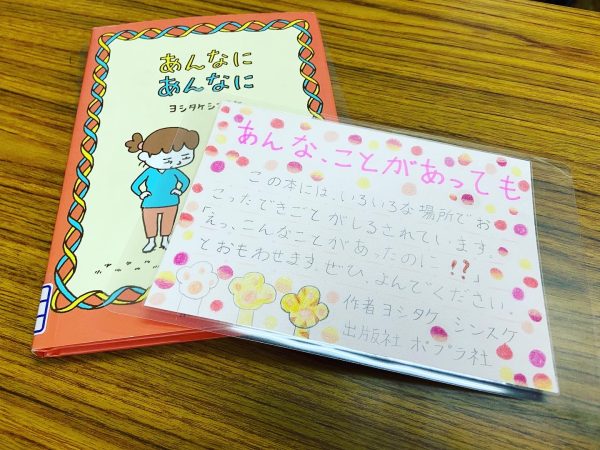 あんなに
あんなに
ヨシタケシンスケ
あんな、ことがあっても
この本には、いろいろな場所でお
こったできごとがしるされています。
「えっ、こんなことがあったのに⁉」
とおもわせます。ぜひ、よんでください。
作者 ヨシタケ シンスケ
出版社 ポプラ社